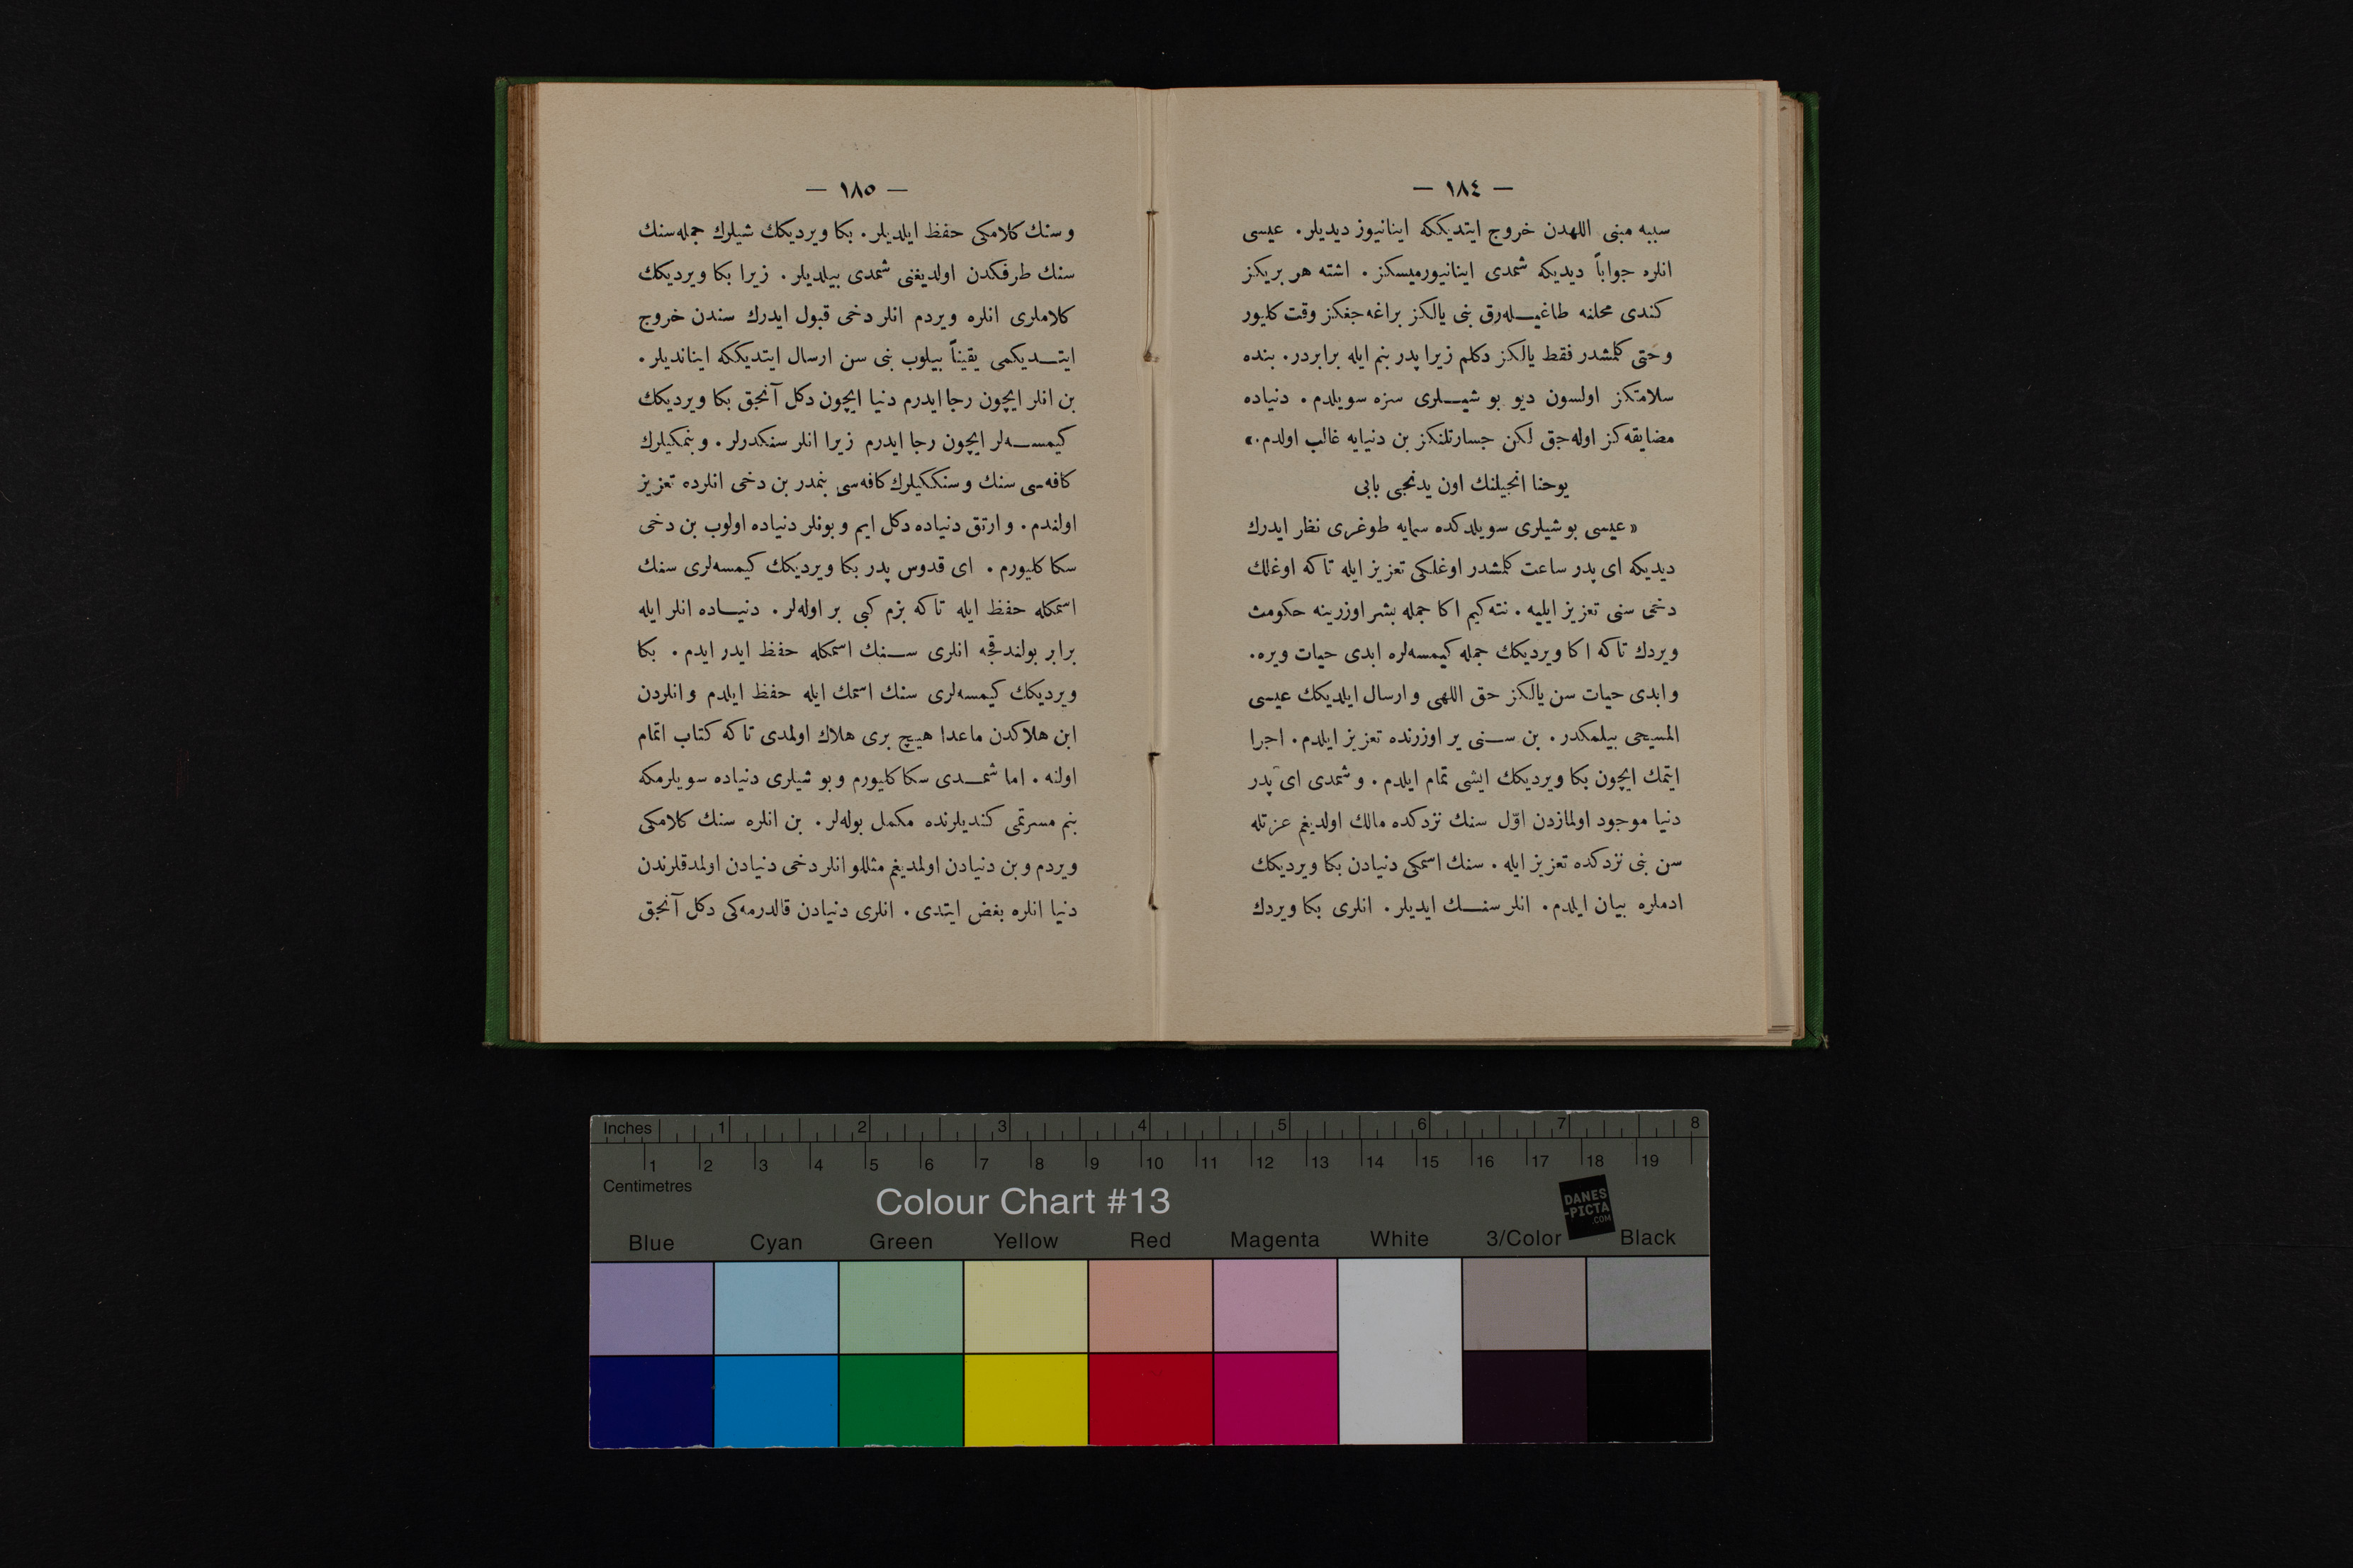 — ١٨٤ —
سببه مبنی اللهدن خروج ایتدیککه اینانیوز دیدیلر. عیسی
انلره جواباً دیدیکه شمدی اینانیورمیسکز. اشته هر بریکز
کندی محلنه طاغیله‌رق بنی یالکز براغه‌جغکز وقت کلیور
و حتی کلمشدر فقط یالکز دکلم زیرا پدر بنم ایله برابردر. بنده
سلامتکز اولسون دیو بو شیلری سزه سویلدم. دنیاده
مضایقه‌کز اوله‌جق لکن جسارتلنکز بن دنیایه غالب اولدم.»
یوحنا انجیلنك اون یدنجی بابی
«عیسی بو شیلری سویلدکده سمایه طوغری نظر ایدرك
دیدیکه ای پدر ساعت کلمشدر اوغلکی تعزیز ایله تا که اوغلك
دخی سنی تعزیز ایلیه. نته‌کیم اکا جمله بشر اوزرینه حکومت
ویردك تا که اکا ویردیکك جمله کیمسه‌لره ابدی حیات ویره.
و ابدی حیات سن یالکز حق اللهی و ارسال ایلدیکك عیسی
المسیحی بیلمکدر. بن سنی یر اوزرنده تعزیز ایلدم. اجرا
ایتمك ایچون بکا ویردیکك ایشی تمام ایلدم. و شمدی ای پدر
دنیا موجود اولمازدن اوّل سنك نزدکده مالك اولدیغم عزتله
سن بنی نزدکده تعزیز ایله. سنك اسمکی دنیادن بکا ویردیکك
ادملره بیان ایلدم. انلر سنك ایدیلر. انلری بکا ویردك
— ١٨٥ —
و سنك کلامکی حفظ ایلدیلر. بکا ویردیکك شیلرك جمله‌سنك
سنك طرفکدن اولدیغنی شمدی بیلدیلر. زیرا بکا ویردیکك
کلاملری انلره ویردم انلر دخی قبول ایدرك سندن خروج
ایتدیکمی یقیناً بیلوب بنی سن ارسال ایتدیککه ایناندیلر.
بن انلر ایچون رجا ایدرم دنیا ایچون دکل آنجق بکا ویردیکك
کیمسه‌لر ایچون رجا ایدرم زیرا انلر سنکدرلر. و بنمکیلرك
کافه‌سی سنك و سنککیلرك کافه‌سی بنمدر بن دخی انلرده تعزیز
اولندم. و ارتق دنیاده دکل ایم و بونلر دنیاده اولوب بن دخی
سکا کلیورم. ای قدوس پدر بکا ویردیکك کیمسه‌لری سنك
اسمکله حفظ ایله تا که بزم کبی بر اوله‌لر. دنیاده انلر ایله
برابر بولندقجه انلری سنك اسمکله حفظ ایدر ایدم. بکا
ویردیکك کیمسه‌لری سنك اسمك ایله حفظ ایلدم و انلردن
ابن هلاکدن ماعدا هیچ بری هلاك اولمدی تا که کتاب اتمام
اولنه. اما شمدی سکا کلیورم و بو شیلری دنیاده سویلرمکه
بنم مسرتمی کندیلرنده مکمل بوله‌لر. بن انلره سنك کلامکی
ویردم و بن دنیادن اولمدیغم مثللو انلر دخی دنیادن اولمدقلرندن
دنیا انلره بغض ایتدی. انلری دنیادن قالدرمه‌کی دکل آنجق
Inches 1 2 3 4 5 6 7 8
1 2 3 4 5 6 7 8 9 10 11 12 13 14 15 16 17 18 19
Centimetres
Colour Chart #13
DANES
-PICTA
.COM
Blue Cyan Green Yellow Red Magenta White 3/Color Black